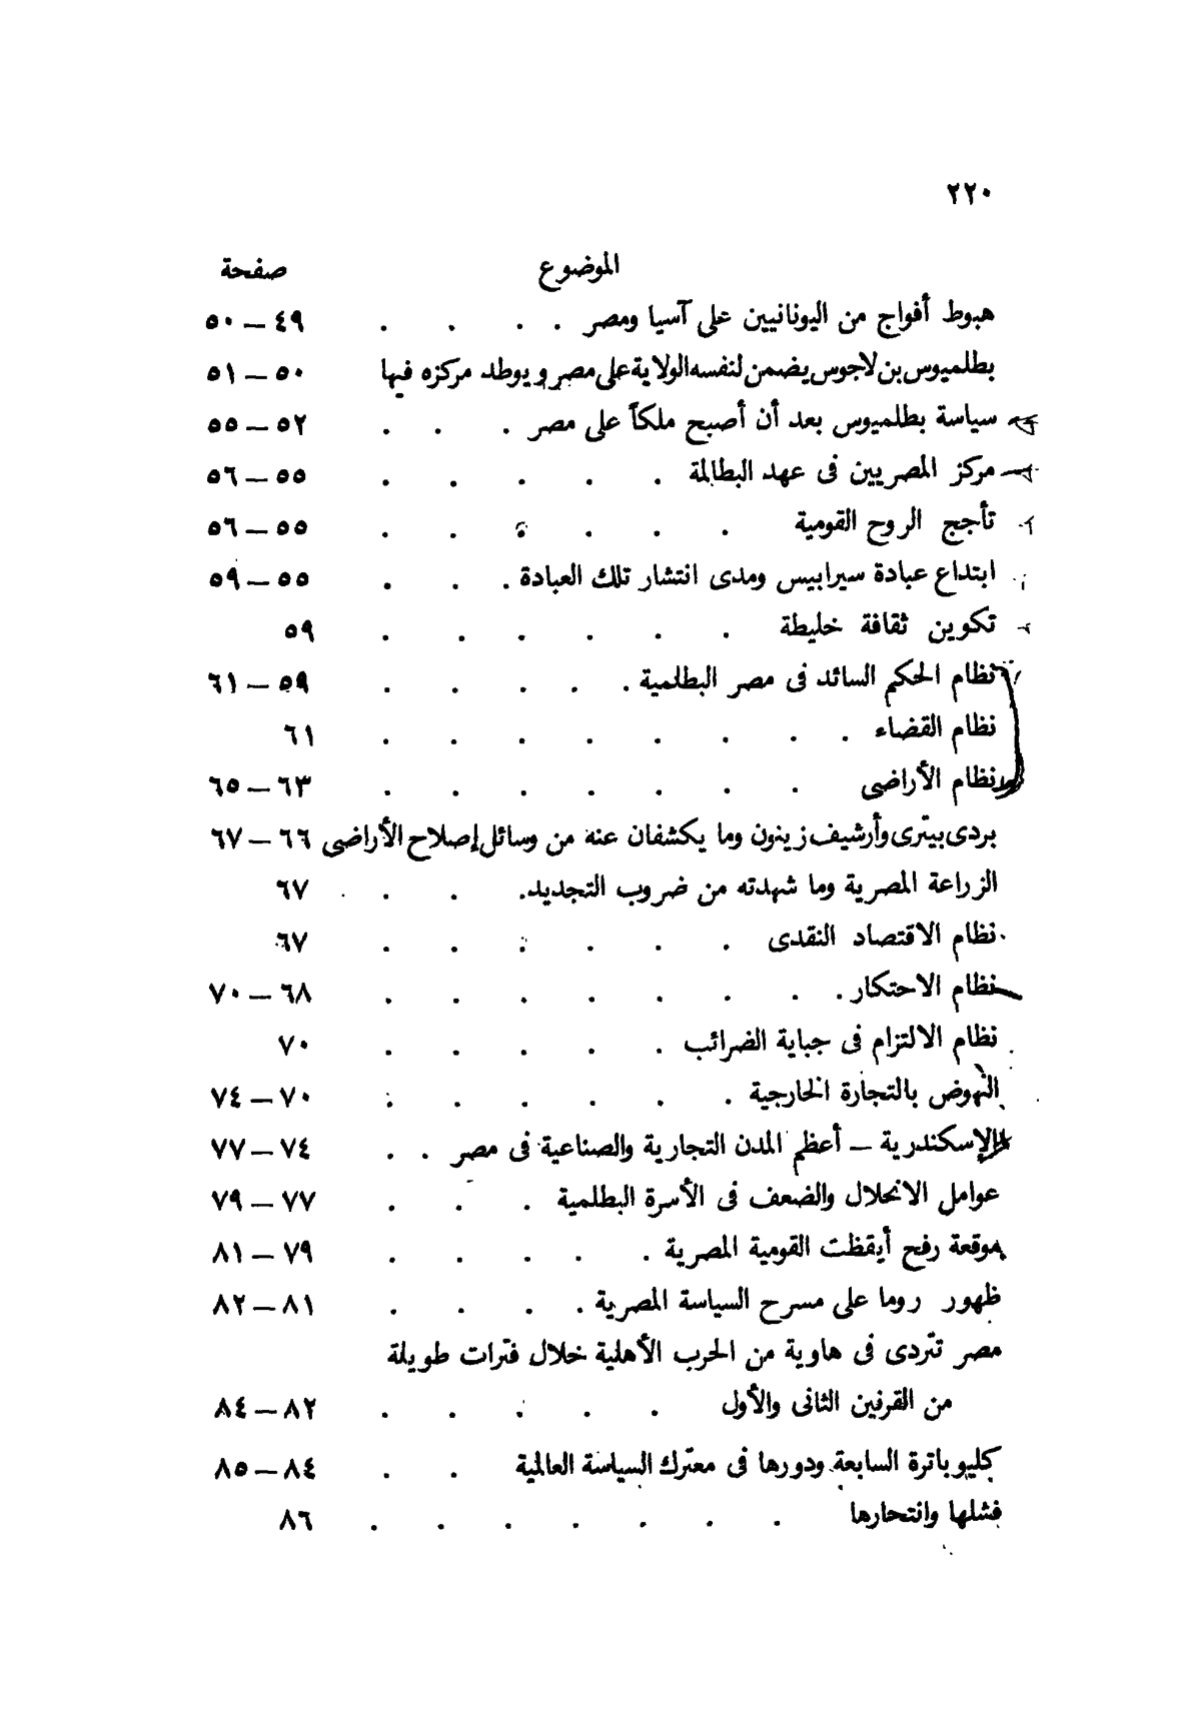 ٢٢٠
الموضوع صفحة
هبوط أفواج من اليونانيين على آسيا ومصر . . . . . ٤٩ – ٥٠
بطلميوس بن لاجوس يضمن لنفسه الولاية على مصر ويوطد مركزه فيها ٥٠ – ٥١
سياسة بطلميوس بعد أن أصبح ملكاً على مصر . . . ٥٢ – ٥٥
مركز المصريين فى عهد البطالمة . . . . . ٥٥ – ٥٦
تأجج الروح القومية . . . . . . ٥٥ – ٥٦
ابتداع عبادة سيرابيس ومدى انتشار تلك العبادة . . . ٥٥ – ٥٩
تكوين ثقافة خليطة . . . . . . ٥٩
نظام الحكم السائد فى مصر البطلمية . . . . . ٥٩ – ٦١
نظام القضاء . . . . . . . . ٦١
نظام الأراضى . . . . . . . ٦٣ – ٦٥
بردى بيترى وأرشيف زينون وما يكشفان عنه من وسائل إصلاح الأراضى ٦٦ – ٦٧
الزراعة المصرية وما شهدته من ضروب التجديد . . . . ٦٧
نظام الاقتصاد النقدى . . . . . . ٦٧
نظام الاحتكار . . . . . . . . ٦٨ – ٧٠
نظام الالتزام فى جباية الضرائب . . . . . ٧٠
النهوض بالتجارة الخارجية . . . . . . ٧٠ – ٧٤
الإسكندرية – أعظم المدن التجارية والصناعية فى مصر . . . ٧٤ – ٧٧
عوامل الانحلال والضعف فى الأسرة البطلمية . . . ٧٧ – ٧٩
موقعة رفح أيقظت القومية المصرية . . . . . ٧٩ – ٨١
ظهور روما على مسرح السياسة المصرية . . . . ٨١ – ٨٢
مصر تتردى فى هاوية من الحرب الأهلية خلال فترات طويلة
من القرنين الثانى والأول . . . . . ٨٢ – ٨٤
كليوباترة السابعة ودورها فى معترك السياسة العالمية . . ٨٤ – ٨٥
فشلها وانتحارها . . . . . . . ٨٦